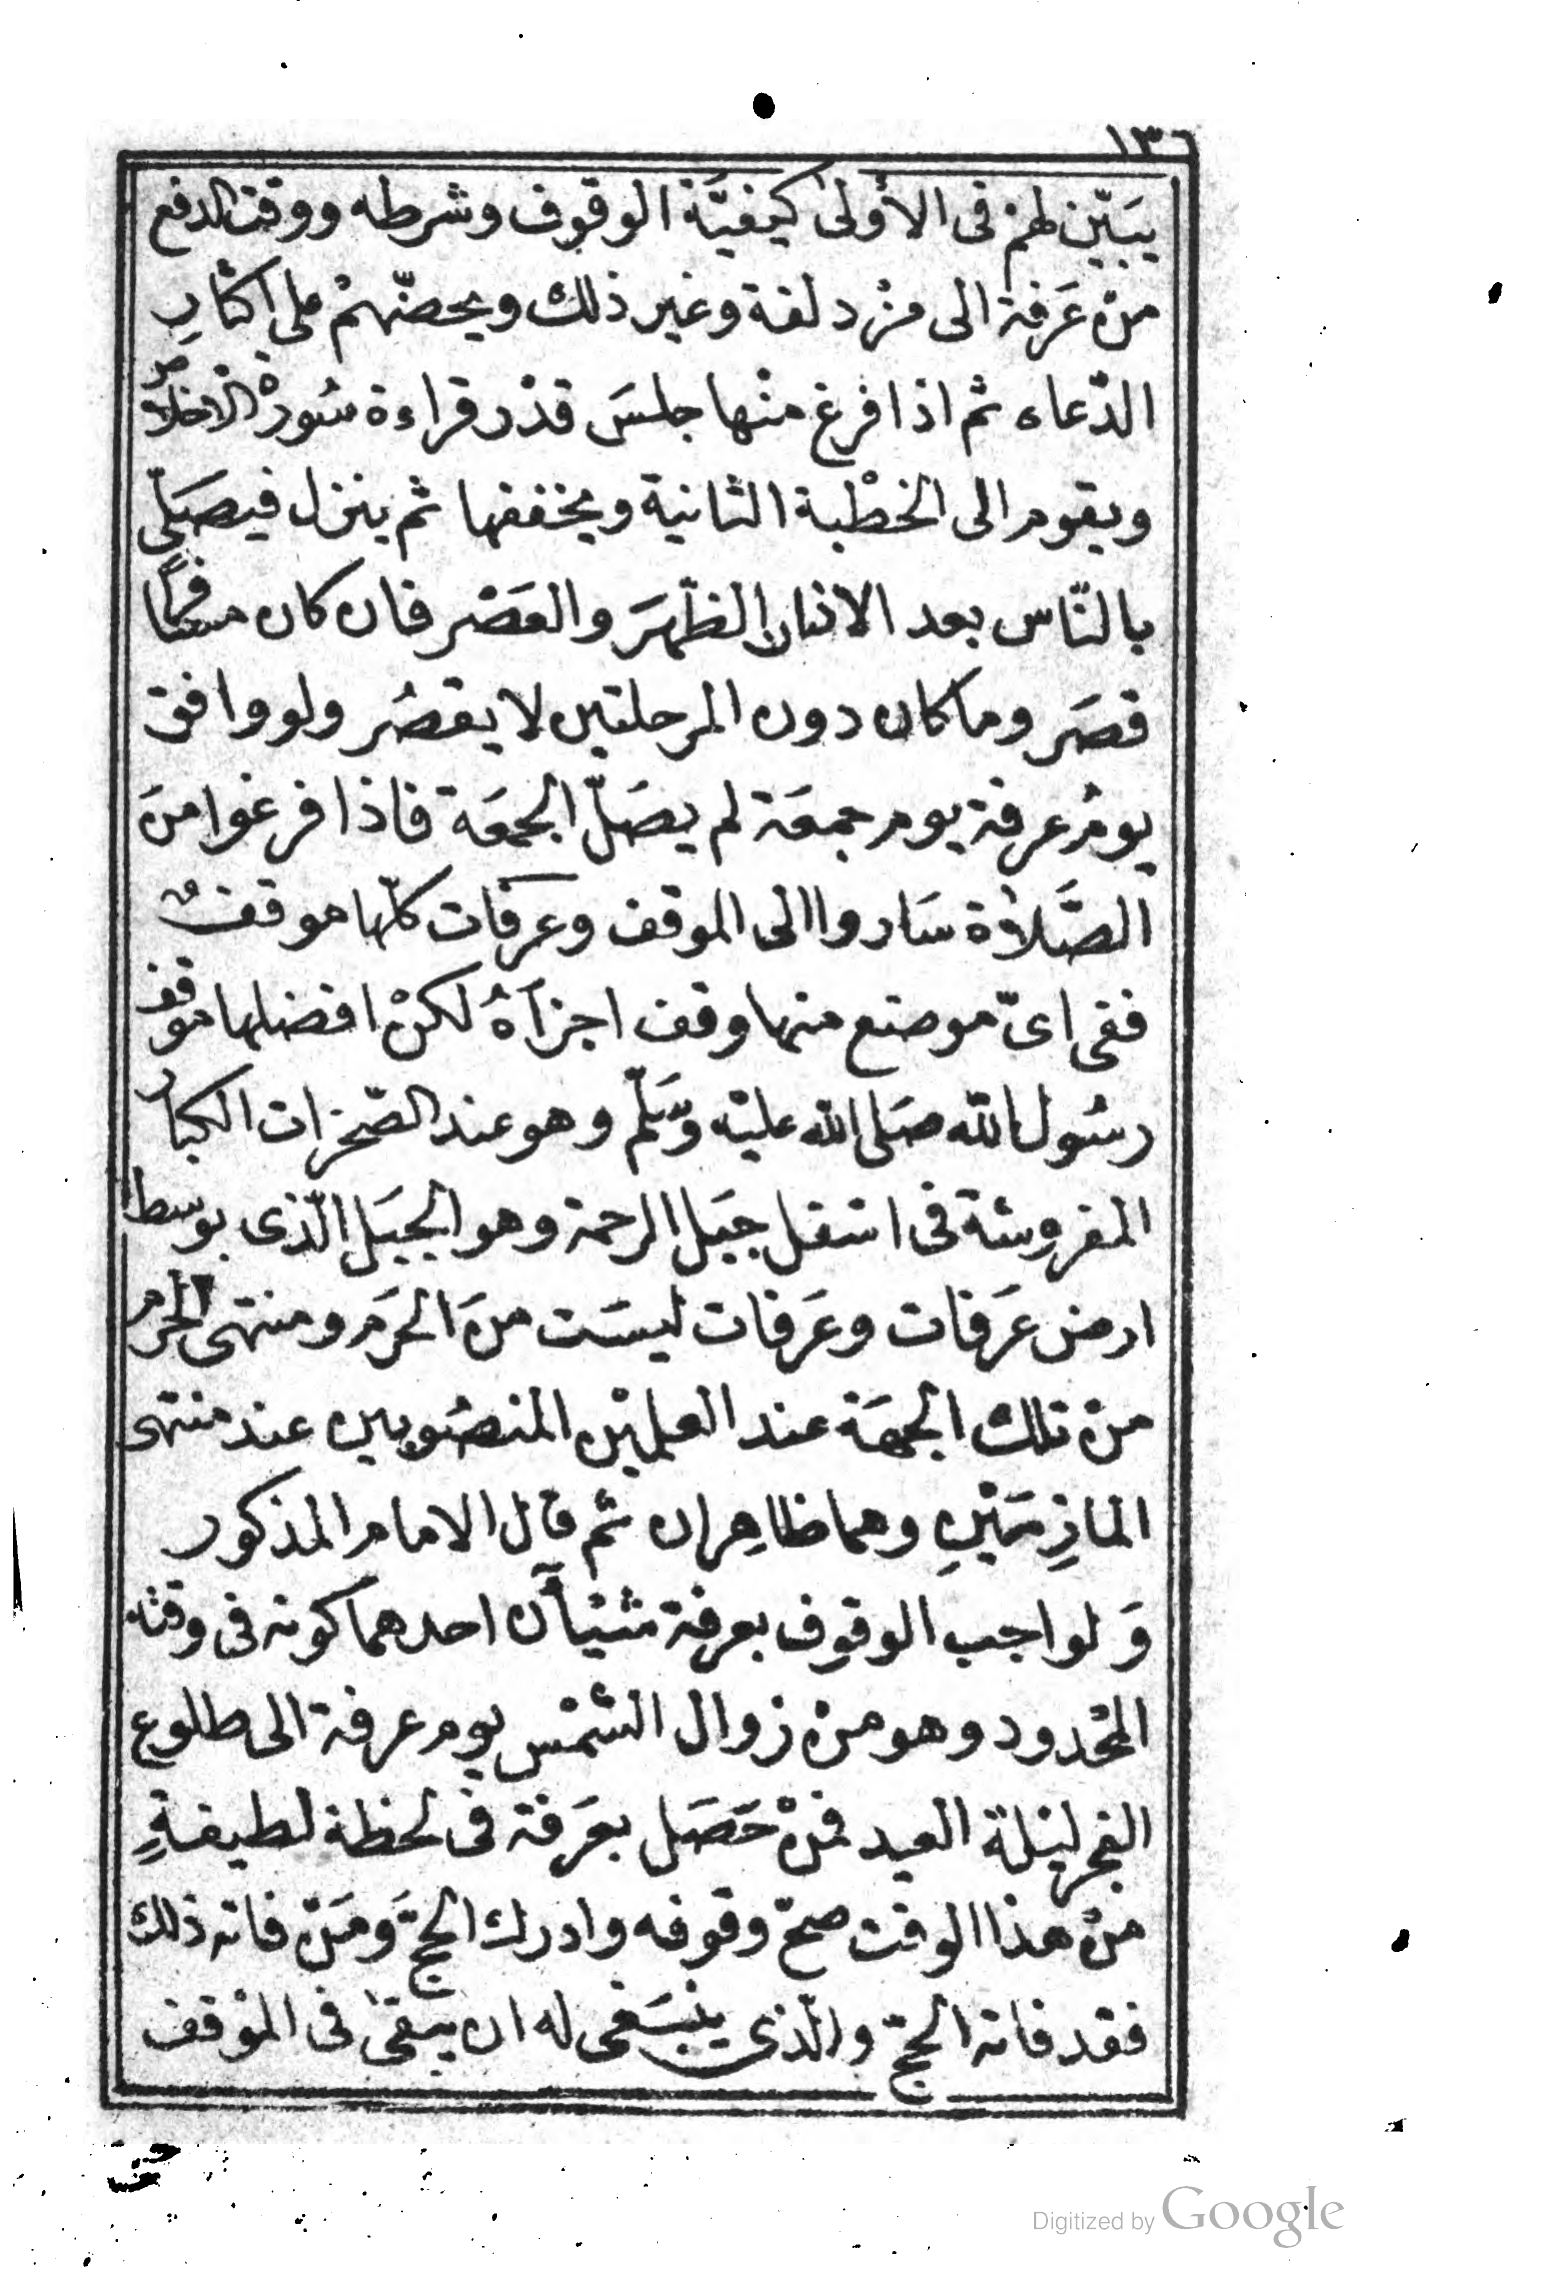 ١٣٦
يبَيّن لهُم فى الأولىٰ كيفيَّة الوقوف وشرطه ووقت الدفع
منْ عَرَفة الى مزْدلفة وغير ذلك ويحضّهمْ على اكثارِ
الدّعاء ثم اذا فرغ منْها جلسَ قدْر قراءة سُورةْ الاخلاص
ويقوم الى الخطْبة الثانية ويخففها ثم ينزل فيصَلّى
بالنّاس بعد الاذان الظّهرَ والعَصْر فان كان مسافرًا
قصَر وما كان دون المرحلتين لا يقصُر ولو وافق
يومُ عرفة يوم جمعَة لم يصَلّ الجمعَة فاذا فرغوا منَ
الصَّلاٰة سَاروا الى الموقف وعرفات كلّها موقفٌ
ففى اىّ موضع منها وقف اجزآهُ لكنْ افضلها موقف
رسُول الله صَلى الله عليْه وَسَلّم وهو عند الصّخرات الكبار
المفروشة فى اسْفل جبَل الرحمة وهو الجبَل الّذى بوسط
ارض عَرَفات وعَرَفات ليسَت منَ الحَرَم ومنتهى الحرم
منْ تلك الجهَة عند العلميْن المنصُوبين عند منتهى
المازِمَيْنِ وهما ظاهِران ثم قال الامام المذكور
وَلواجب الوقوِف بعرفة شيْئآن احدهما كونه فى وقته
المحْدود وهو منْ زوال الشمْس يوم عرفة الى طلوع
الفجر ليْلة العيد فمنْ حَصَل بعَرَفة فى لحظة لطيفةٍ
منْ هذا الوقت صحّ وقوفه وادرك الحجّ وَمَنْ فاته ذلك
فقد فاته الحجّ والّذى ينْبَغى له ان يبقىٰ فى الموْقف
Digitized by Google